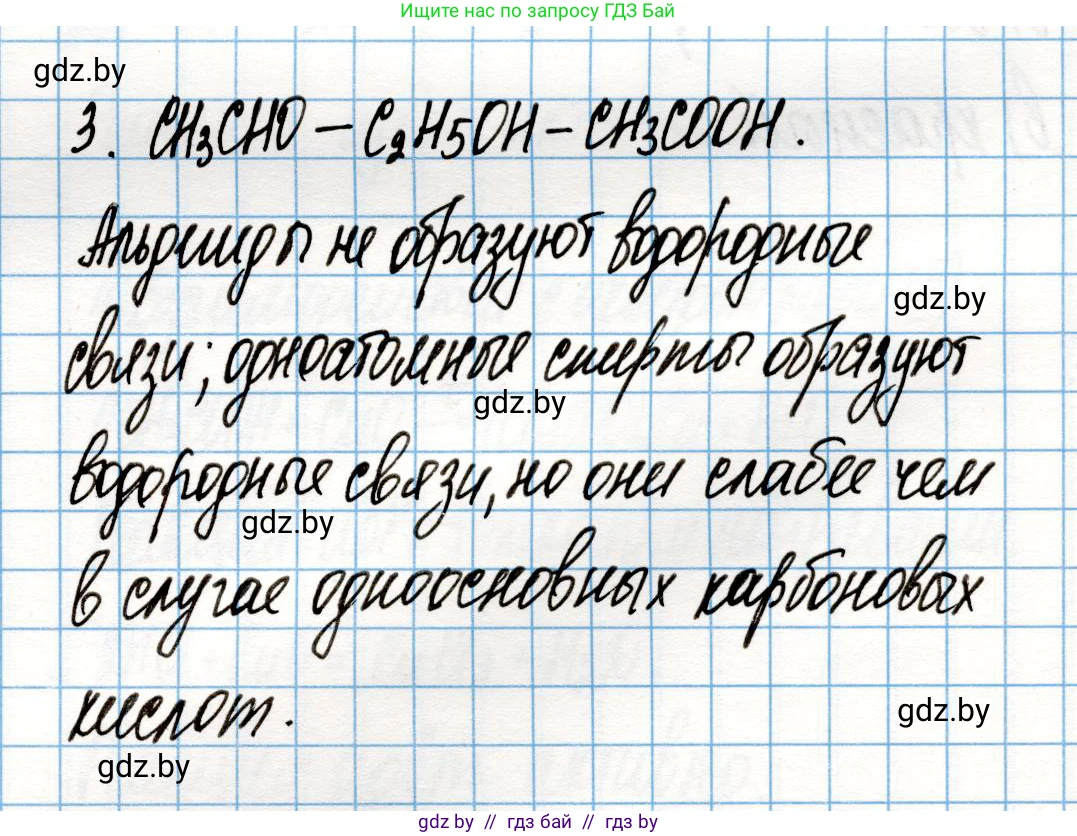 Ищите нас по запросу ГДЗ Бай
gdz.by
3. CH3CHO – C2H5OH – CH3COOH.
Альдегиды не образуют водородные
gdz.by
связи; одноатомные спирты образуют
gdz.by
водородные связи, но они слабее чем
gdz.by
в случае одноосновных карбоновых
кислот.
gdz.by
gdz.by
gdz.by // гдз бай // гдз by